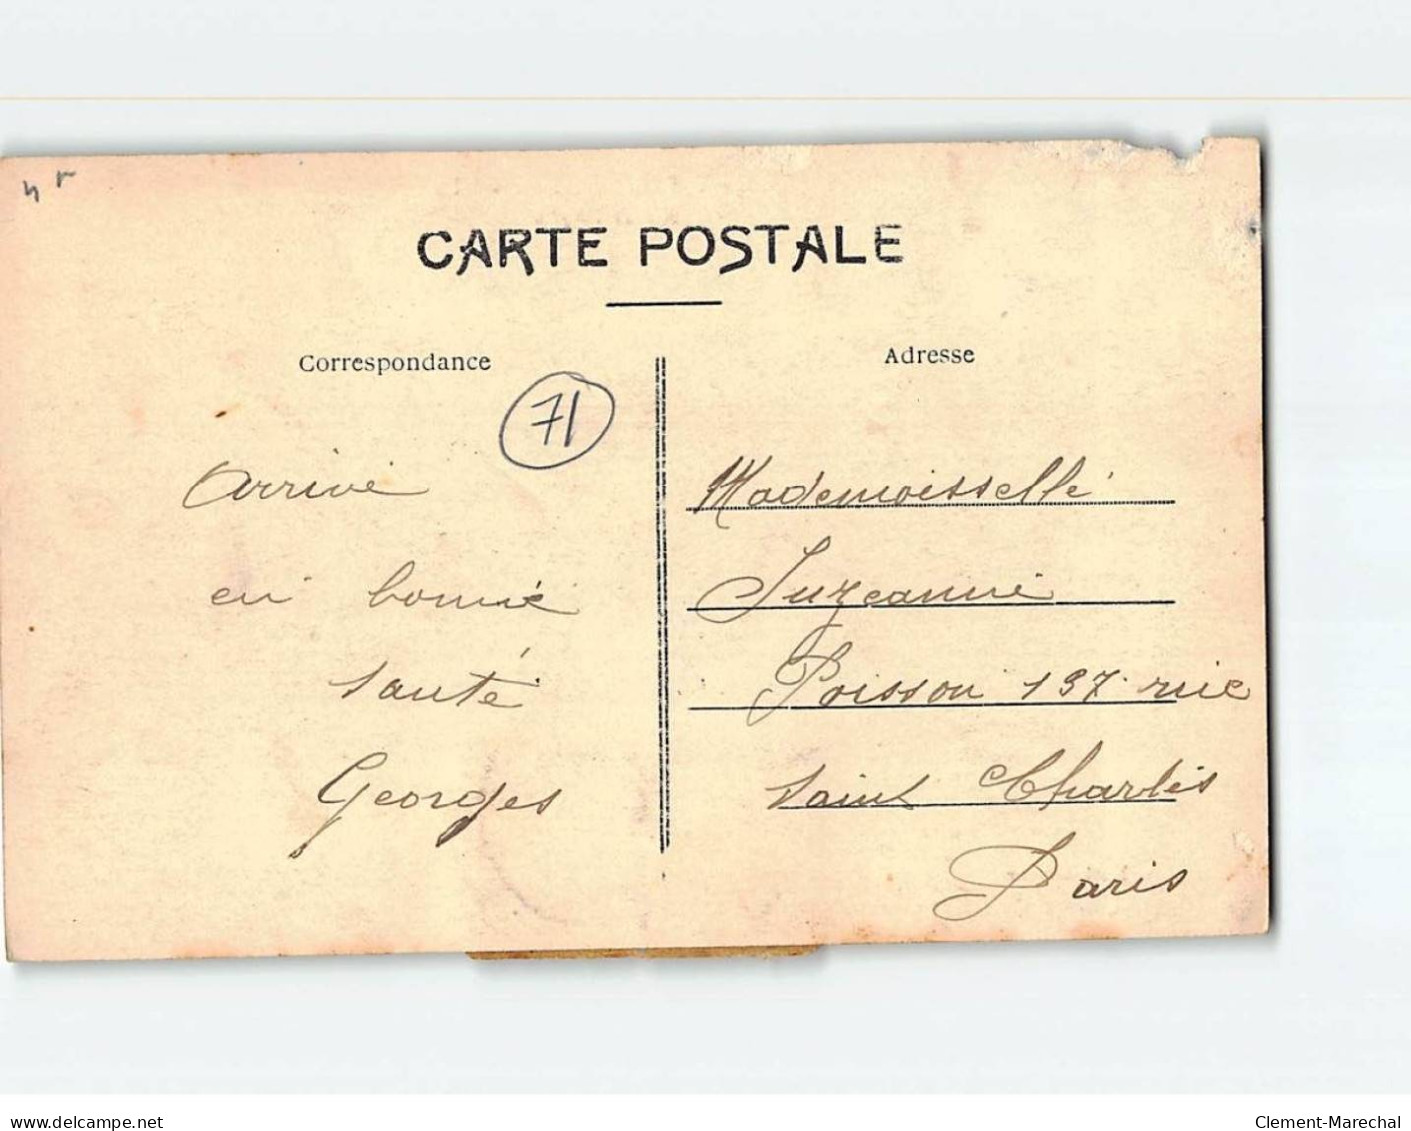 CARTE POSTALE
Correspondance
71
Arrive
en bonne
santé
Georges
Adresse
Mademoisselle
Suzeanne
Poisson 137 rue
Saint Charles
Paris
delcampe.net
Clement-Marechal